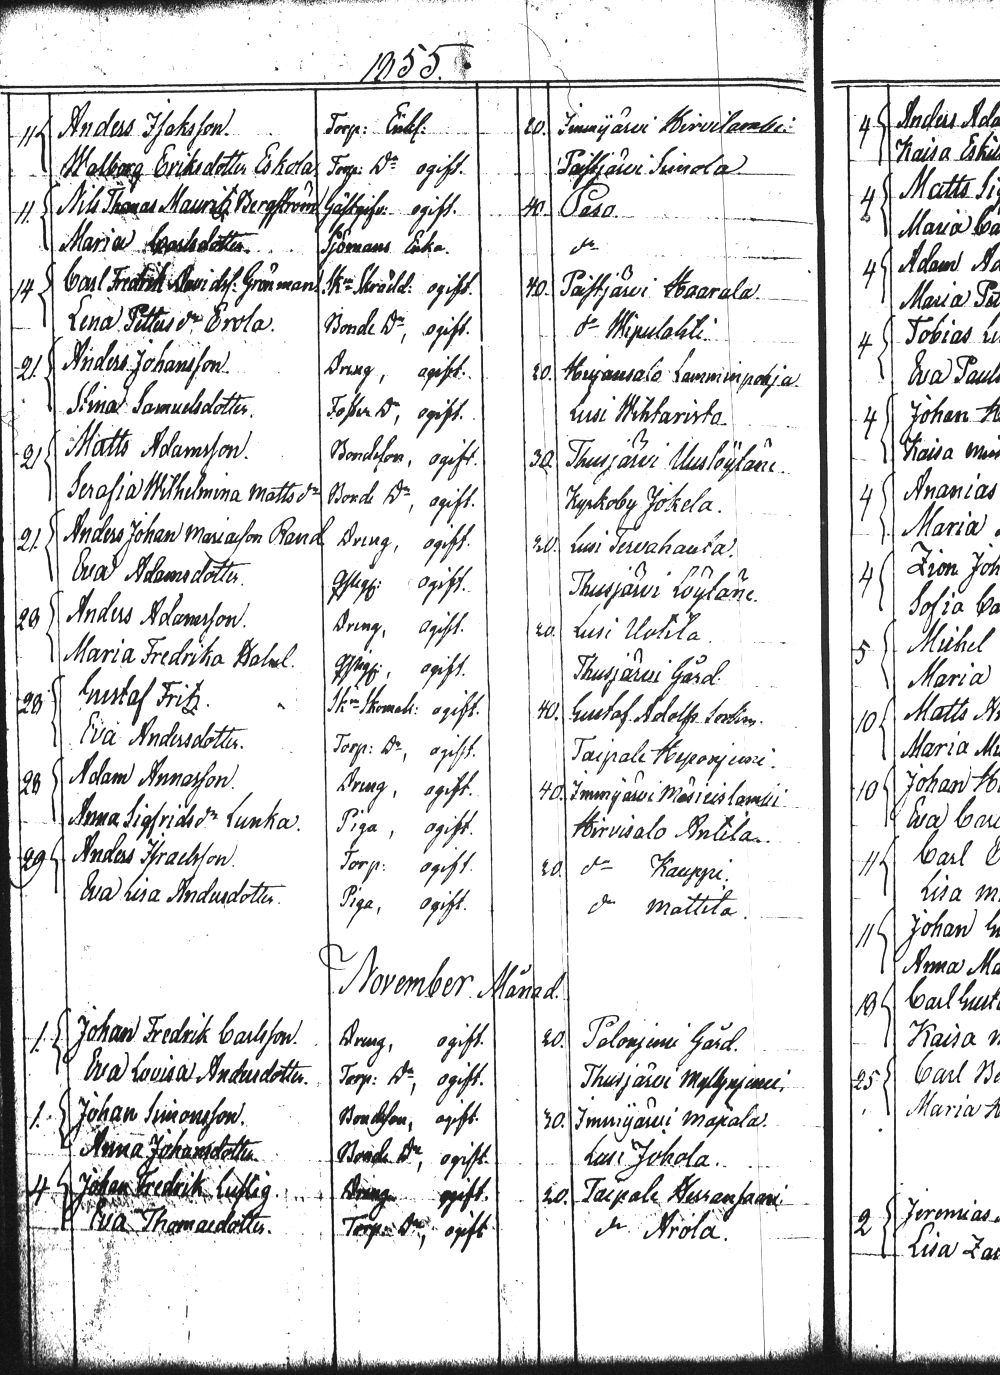 1855.
11 Anders Isaksson. Torp: Enkl: 20. Imjärvi Hirvilambi.
Walborg Eriksdotter Eskola Torp: Dr ogift. Paistjärvi Simola
11. Nils Thomas Mauritz Bergström Gästgifv: ogift. 40. Paso.
Maria Carlsdotter. Sjömans Enka. dr
14 Carl Fredrik Davidsf: Grönman Skn Skrädd: ogift. 40. Paistjärvi Haarala.
Lena Petters dr Erola. Bonde Dr, ogift. dr Wipulahti.
21. Anders Johansson. Dreng, ogift. 20. Heijansalo Lamminpohja.
Stina Samuelsdotter. Foster Dr, ogift. Lusi Wihtaristo
21 Matts Adamsson. Bondeson, ogift. 30. Thusjärvi Uusilöytäne.
Serafia Wilhelmina Matts dr Bonde Dr, ogift. Kyrkoby Jokela.
21. Anders Johan Mariasson Rand Dreng, ogift. 20. Lusi
Eva Adamsdotter. ogift. Thusjärvi Löytäne.
28 Anders Adamsson. Dreng, ogift. 20. Lusi Uotila.
Maria Fredrika Holmel. ogift. Thusjärvi Gård.
28 Gustaf Fritz. Skn Skomak: ogift. 40. Gustaf Adolfs Socken.
Eva Andersdotter. Torp: Dr, ogift. Taipale Heponjemi.
28 Adam Annasson. Dreng, ogift. 40. Imjärvi
Anna Sigfrids dr Lunka. Piga, ogift. Hirvisalo Antila.
29 Anders Israelsson. Torp: ogift. 20. dr Kauppi.
Eva Lisa Andersdotter. Piga, ogift. dr Mattila.
November Månad.
1. Johan Fredrik Carlsson. Dreng, ogift. 20. Polonjemi Gård.
Eva Lovisa Andersdotter. Torp: Dr, ogift. Thusjärvi Myllynjemi.
1. Johan Simonsson. Bondeson, ogift. 30. Imjärvi Mapala.
Anna Johansdotter. Bonde Dr, ogift. Lusi Johola.
4 Johan Fredrik Luftig. Dreng ogift. 20. Taipale Herransaari
Eva Thomaedotter. Torp: Dr, ogift dr Arola.
4 Anders Ada
Kaisa Eski
4 Matts Sig
Maria Ca
4 Adam Ad
Maria Pet
4 Tobias
Eva Paul
4 Johan
Kaisa
4 Ananias
Maria
4 Zion Joh
Sofia Ca
5 Michel
Maria
10 Matts
Maria
10 Johan
Eva Carl
11 Carl
Lisa
11 Johan
Anna Ma
18 Carl Gust
Kaisa
25 Carl
Maria
2 Jeremias
Lisa Za